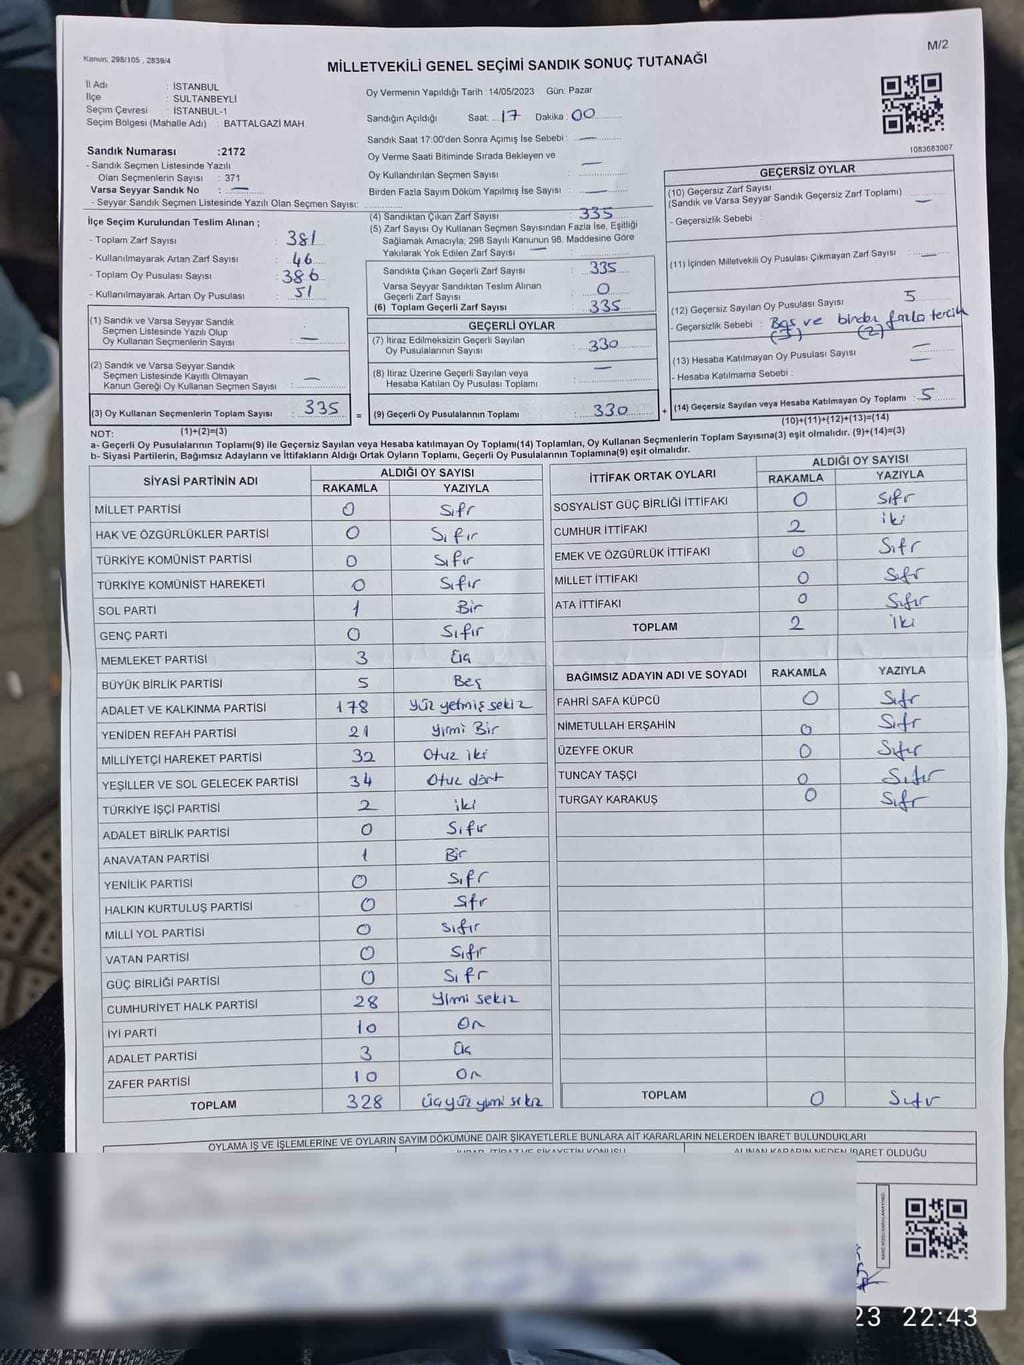 M/2
Kanun, 298/105 , 2839/4
MİLLETVEKİLİ GENEL SEÇİMİ SANDIK SONUÇ TUTANAĞI
İl Adı : İSTANBUL
İlçe : SULTANBEYLİ
Seçim Çevresi : İSTANBUL-1
Seçim Bölgesi (Mahalle Adı) : BATTALGAZİ MAH.
Oy Vermenin Yapıldığı Tarih :14/05/2023 Gün: Pazar
Sandığın Açıldığı Saat: 17 Dakika: 00
Sandık Saat 17:00'den Sonra Açımış İse Sebebi : —
Oy Verme Saati Bitiminde Sırada Bekleyen ve
Oy Kullandırılan Seçmen Sayısı : —
Birden Fazla Sayım Döküm Yapılmış İse Sayısı : —
1083683007
Sandık Numarası :2172
- Sandık Seçmen Listesinde Yazılı
Olan Seçmenlerin Sayısı : 371
Varsa Seyyar Sandık No : —
- Seyyar Sandık Seçmen Listesinde Yazılı Olan Seçmen Sayısı:
İlçe Seçim Kurulundan Teslim Alınan ;
- Toplam Zarf Sayısı : 381
- Kullanılmayarak Artan Zarf Sayısı : 46
- Toplam Oy Pusulası Sayısı : 386
- Kullanılmayarak Artan Oy Pusulası : 51
(1) Sandık ve Varsa Seyyar Sandık
Seçmen Listesinde Yazılı Olup
Oy Kullanan Seçmenlerin Sayısı : —
(2) Sandık ve Varsa Seyyar Sandık
Seçmen Listesinde Kayıtlı Olmayan
Kanun Gereği Oy Kullanan Seçmen Sayısı : —
(3) Oy Kullanan Seçmenlerin Toplam Sayısı : 335 =
(1)+(2)=(3)
(4) Sandıktan Çıkan Zarf Sayısı : 335
(5) Zarf Sayısı Oy Kullanan Seçmen Sayısından Fazla İse, Eşitliği
Sağlamak Amacıyla; 298 Sayılı Kanunun 98. Maddesine Göre
Yakılarak Yok Edilen Zarf Sayısı : —
Sandıkta Çıkan Geçerli Zarf Sayısı : 335
Varsa Seyyar Sandıktan Teslim Alınan
Geçerli Zarf Sayısı : 0
(6) Toplam Geçerli Zarf Sayısı : 335
GEÇERLİ OYLAR
(7) İtiraz Edilmeksizin Geçerli Sayılan
Oy Pusulalarının Sayısı : 330
(8) İtiraz Üzerine Geçerli Sayılan veya
Hesaba Katılan Oy Pusulası Toplamı : —
(9) Geçerli Oy Pusulalarının Toplamı : 330 +
GEÇERSİZ OYLAR
(10) Geçersiz Zarf Sayısı
(Sandık ve Varsa Seyyar Sandık Geçersiz Zarf Toplamı) : —
- Geçersizlik Sebebi :
(11) İçinden Milletvekili Oy Pusulası Çıkmayan Zarf Sayısı : —
(12) Geçersiz Sayılan Oy Pusulası Sayısı : 5
- Geçersizlik Sebebi : Boş ve birden fazla tercih
(3) (2)
(13) Hesaba Katılmayan Oy Pusulası Sayısı : —
- Hesaba Katılmama Sebebi : —
(14) Geçersiz Sayılan veya Hesaba Katılmayan Oy Toplamı : 5
(10)+(11)+(12)+(13)=(14)
NOT:
a- Geçerli Oy Pusulalarının Toplamı(9) ile Geçersiz Sayılan veya Hesaba katılmayan Oy Toplamı(14) Toplamları, Oy Kullanan Seçmenlerin Toplam Sayısına(3) eşit olmalıdır. (9)+(14)=(3)
b- Siyasi Partilerin, Bağımsız Adayların ve İttifakların Aldığı Ortak Oyların Toplamı, Geçerli Oy Pusulalarının Toplamına(9) eşit olmalıdır.
SİYASİ PARTİNİN ADI ALDIĞI OY SAYISI
RAKAMLA YAZIYLA
MİLLET PARTİSİ 0 Sıfır
HAK VE ÖZGÜRLÜKLER PARTİSİ 0 Sıfır
TÜRKİYE KOMÜNİST PARTİSİ 0 Sıfır
TÜRKİYE KOMÜNİST HAREKETİ 0 Sıfır
SOL PARTİ 1 Bir
GENÇ PARTİ 0 Sıfır
MEMLEKET PARTİSİ 3 Üç
BÜYÜK BİRLİK PARTİSİ 5 Beş
ADALET VE KALKINMA PARTİSİ 178 Yüz yetmiş sekiz
YENİDEN REFAH PARTİSİ 21 Yirmi Bir
MİLLİYETÇİ HAREKET PARTİSİ 32 Otuz iki
YEŞİLLER VE SOL GELECEK PARTİSİ 34 Otuz dört
TÜRKİYE İŞÇİ PARTİSİ 2 iki
ADALET BİRLİK PARTİSİ 0 Sıfır
ANAVATAN PARTİSİ 1 Bir
YENİLİK PARTİSİ 0 Sıfır
HALKIN KURTULUŞ PARTİSİ 0 Sıfır
MİLLİ YOL PARTİSİ 0 Sıfır
VATAN PARTİSİ 0 Sıfır
GÜÇ BİRLİĞİ PARTİSİ 0 Sıfır
CUMHURİYET HALK PARTİSİ 28 Yirmi sekiz
İYİ PARTİ 10 On
ADALET PARTİSİ 3 Üç
ZAFER PARTİSİ 10 On
TOPLAM 328 Üçyüz yirmi sekiz
İTTİFAK ORTAK OYLARI ALDIĞI OY SAYISI
RAKAMLA YAZIYLA
SOSYALİST GÜÇ BİRLİĞİ İTTİFAKI 0 Sıfır
CUMHUR İTTİFAKI 2 iki
EMEK VE ÖZGÜRLÜK İTTİFAKI 0 Sıfır
MİLLET İTTİFAKI 0 Sıfır
ATA İTTİFAKI 0 Sıfır
TOPLAM 2 iki
BAĞIMSIZ ADAYIN ADI VE SOYADI RAKAMLA YAZIYLA
FAHRİ SAFA KÜPCÜ 0 Sıfır
NİMETULLAH ERŞAHİN 0 Sıfır
ÜZEYFE OKUR 0 Sıfır
TUNCAY TAŞÇI 0 Sıfır
TURGAY KARAKUŞ 0 Sıfır
TOPLAM 0 Sıfır
OYLAMA İŞ VE İŞLEMLERİNE VE OYLARIN SAYIM DÖKÜMÜNE DAİR ŞİKAYETLERLE BUNLARA AİT KARARLARIN NELERDEN İBARET BULUNDUKLARI
ALINAN KARARIN NEDEN İBARET OLDUĞU
23 22:43